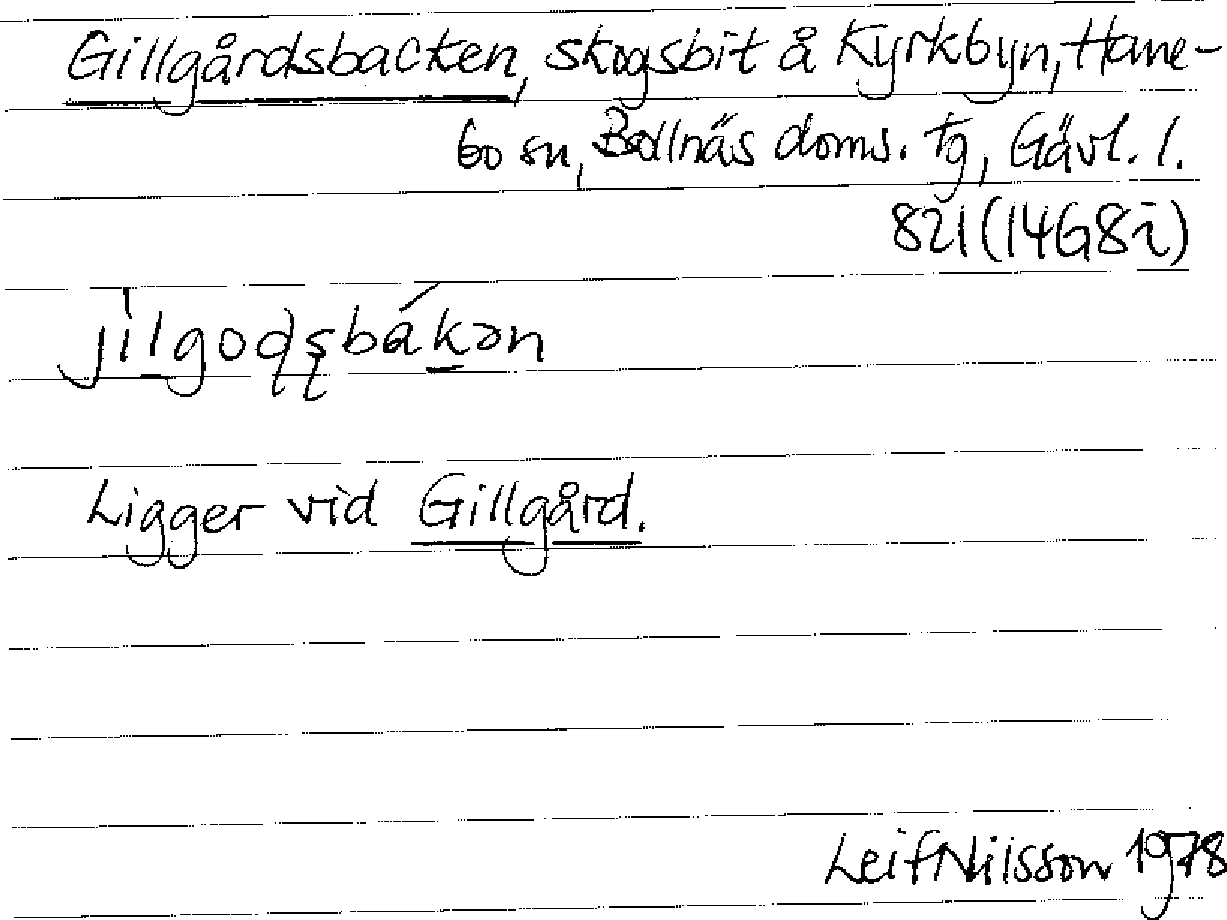 Gillgårdsbacken, skogsbit å Kyrkbyn, Hane-
bo sn, Bollnäs doms. tg, Gävl. l.
821 (14G8i)
jilgodsbákən
Ligger vid Gillgård.
Leif Nilsson 1978